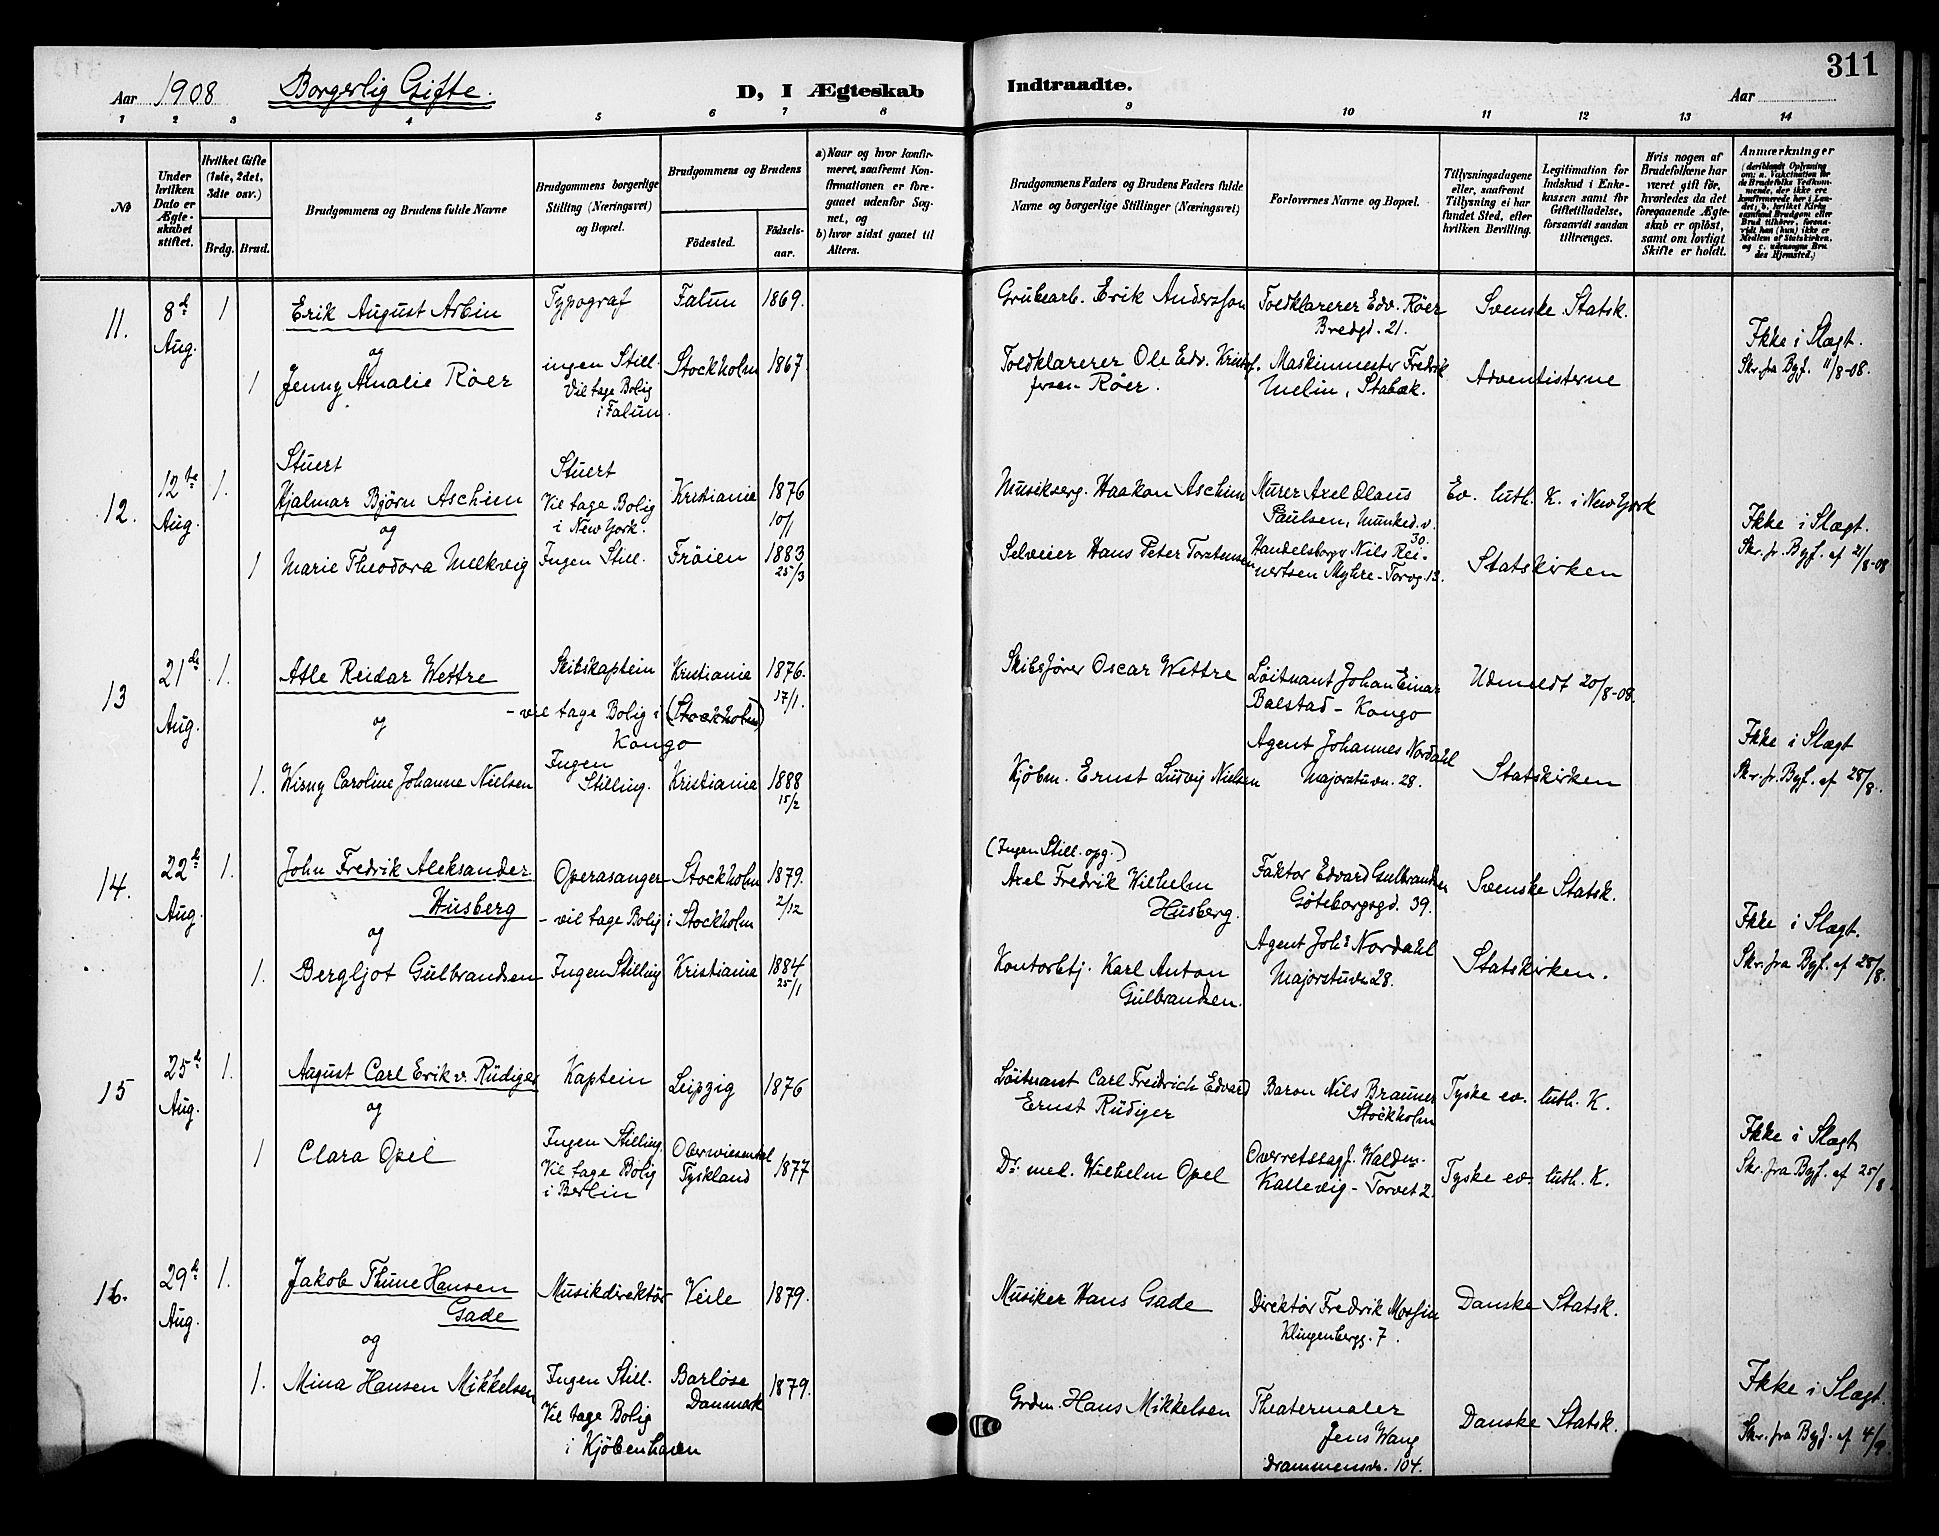 311
Aar 1908 Borgerlig Gifte. D, I Ægteskab Indtraadte. Aar
1 2 3 4 5 6 7 8 9 10 11 12 13 14
No
Under hvilken Dato er Ægteskabet stiftet.
Hvilket Gifte (1ste, 2det, 3die osv.)
Brdg. Brud.
Brudgommens og Brudens fulde Navne
Brudgommens borgerlige Stilling (Næringsvei) og Bopæl.
Brudgommens og Brudens
Fødested. Fødselsaar.
a) Naar og hvor konfirmeret, saafremt Konfirmationen er foregaaet udenfor Sognet, og
b) hvor sidst gaaet til Alters.
Brudgommens Faders og Brudens Faders fulde Navne og borgerlige Stillinger (Næringsvei)
Forlovernes Navne og Bopæl.
Tillysningsdagene eller, saafremt Tillysning ei har fundet Sted, efter hvilken Bevilling.
Legitimation for Indskud i Enkekassen samt for Giftetilladelse, forsaavidt saadan tiltrænges.
Hvis nogen af Brudefolkene har været gift før, hvorledes da det foregaaende Ægteskab er opløst, samt om lovligt Skifte er holdt.
Anmærkninger
(deriblandt Oplysning om: a. Vakcination for de Brudefolks Vedkommende, der ikke ere konfirmerede her i Landet; b. hvilket Kirkesamfund Brudgom eller Brud tilhører, forsaavidt han (hun) ikke er Medlem af Statskirken, og c. udensogns Brudes Hjemsted.)
11. 8de Aug. 1 Erik August Arbin Typograf Falun 1869. Grubearb. Erik Andersson Toldklarerer Edv. Röer Bredgd. 21. Svenske Statsk.
og
1 Jenny Amalie Röer ingen Still. Vil tage Bolig i Falun. Stockholm 1867 Toldklarerer Ole Edv. Kristofersen Röer. Maskinmester Fredrik Melin, Stabæk. Adventisterne
Ikke i Slægt.
Skr. fra Byf. 11/8-08.
12. 12te Aug. 1. Stuert
Hjalmar Bjørn Aschim Stuert Vil tage Bolig i New York. Kristiania 1876 10/1 Musikserg. Haakon Aschim Murer Axel Olaus Paulsen, Munked.v. 30. Ev. luth. K. i New York
og
1 Marie Theodora Melkvig Ingen Still. Frøien 1883 25/3 Selveier Hans Peter Torstensen Handelsborg. Nils Reinertsen Myhre - Torvg. 13. Statskirken
Ikke i Slægt.
Skr. fr. Byf. af 21/8-08
13 21de Aug. 1. Atle Reidar Wettre Skibskaptein - vil tage Bolig i Kongo Kristiania (Stockholm) 1876. 17/1. Skibsfører Oscar Wettre Löitnant Johan Einar Balstad - Kongo Udmeldt 20/8-08.
og
1. Wisny Caroline Johanne Nielsen Ingen Stilling. Kristiania 1888 15/2 Kjöbm. Ernst Ludvig Nielsen Agent Johannes Nordahl Majorstuvn. 28. Statskirken
Ikke i Slægt
Skr. fr. Byf. af 28/8.
14. 22de Aug. 1. John Fredrik Aleksander Husberg Operasanger - vil tage Bolig i Stockholm Stockholm 1879. 2/12 (Ingen Still. opg.) Axel Fredrik Wilhelm Husberg. Faktor Edvard Gulbrandsen Göteborgsgd. 39. Svenske Statsk.
og
1. Bergljot Gulbrandsen Ingen Stilling Kristiania 1884 25/1 Kontorbtj. Karl Anton Gulbrandsen. Agent Johs Nordahl Majorstuvn 28. Statskirken.
Ikke i Slægt.
Skr. fra Byf. af 28/8.
15 25de Aug. 1. August Carl Erik v. Rüdiger Kaptein Leipzig 1876 Löitnant Carl Freidrich Edvard Ernst Rüdiger Baron Nils Brauner Stockholm Tyske ev. luth. K.
og
1 Clara Opel Ingen Stilling. Vil tage Bolig i Berlin Oberwiesental Tyskland 1877 Dr. med. Wilhelm Opel Overretssagf. Waldm. Kallevig - Torvet 2. Tyske ev. luth. K.
Ikke i Slægt
Skr. fra Byf. af 25/8
16. 29de Aug. 1. Jakob Thune Hansen Gade Musikdirektør Veile 1879. Musiker Hans Gade Direktør Fredrik Mossin Klingenbergg. 7. Danske Statsk.
og
1. Mina Hansen Mikkelsen Ingen Still. Vil tage Bolig i Kjöbenhavn Barløse Danmark 1879. Grdm. Hans Mikkelsen Theatermaler Jens Wang Drammensv. 104. Danske Statsk.
Ikke i Slægt.
Skr. fra Byf. af 4/9